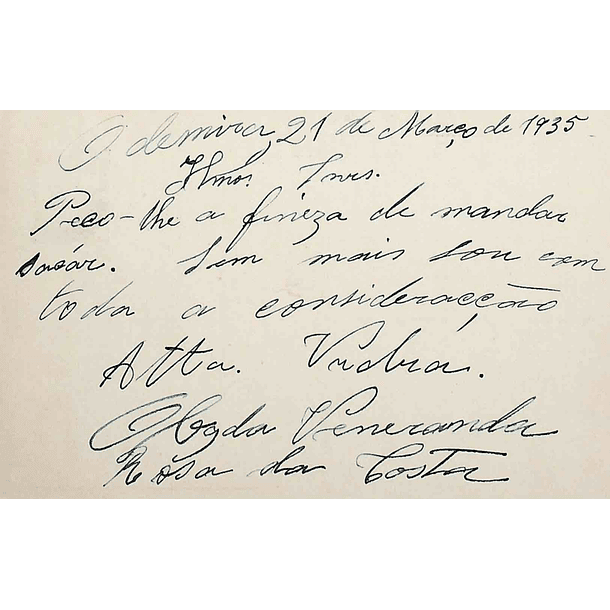 Odemira, 21 de Março de 1935
Ilmos. Snrs.
Peço-lhe a fineza de mandar
sacár. Sem mais sou com
toda a consideracção
Atta. Vndra.
Veneranda
Rosa da Costa